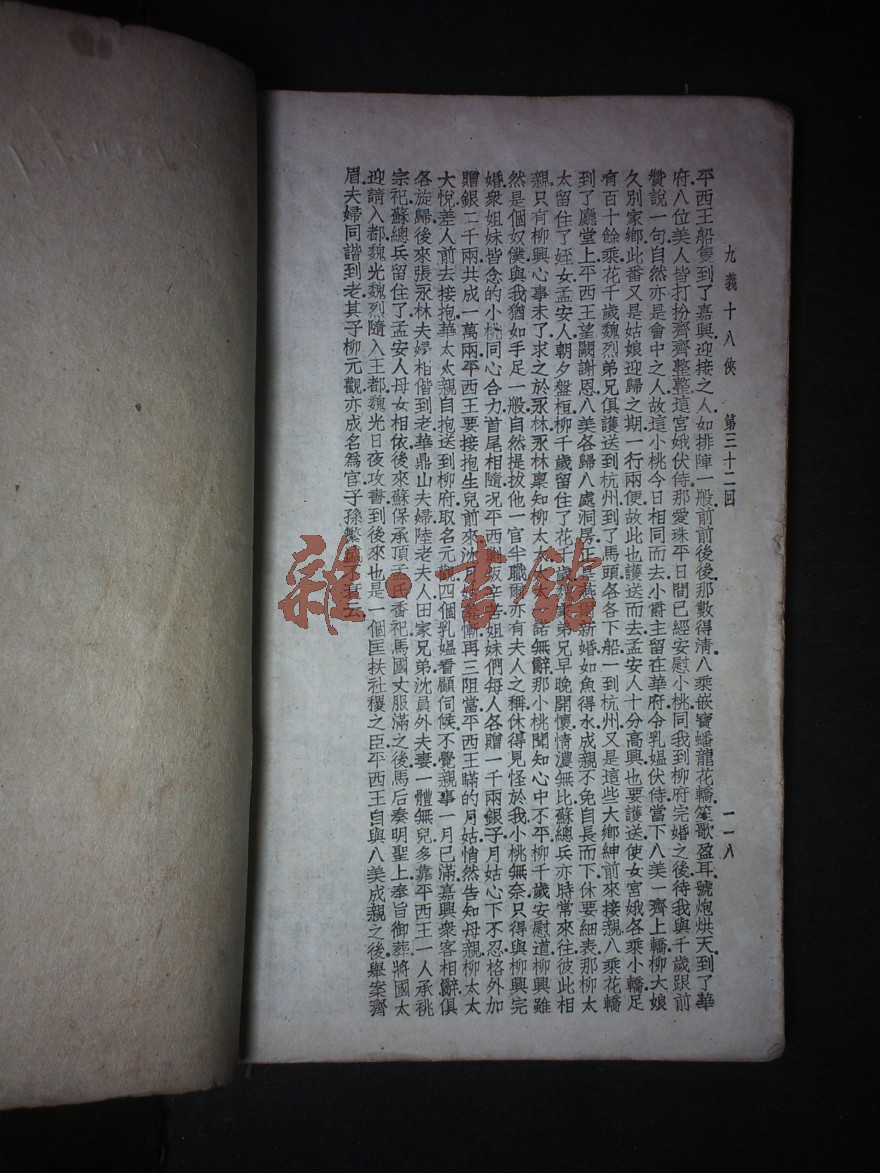 九義十八俠 第三十二回 一一八
平西王船隻到了嘉興迎接之人如排陣一般前前後後那數得淸八乘嵌寶蟠龍花轎笙歌盈耳號炮烘天到了華
府八位美人皆打扮齊齊整整這宮娥伏侍那愛珠平日間已經安慰小桃同我到柳府完婚之後待我與千歲跟前
贊說一句自然亦是會中之人故這小桃今日相同而去小爵主留在華府令乳媼伏侍當下八美一齊上轎柳大娘
久別家鄉此番又是姑娘迎歸之期一行兩便故此也護送而去孟安人十分高興也要護送使女宮娥各乘小轎足
有百十餘乘花千歲魏烈弟兄俱護送到杭州到了馬頭各各下船一到杭州又是這些大鄉紳前來接親八乘花轎
到了廳堂上平西王望闕謝恩八美各歸八處洞房正是燕爾新婚如魚得水成親不免自長而下休要細表那柳太
太留住了姪女孟安人朝夕盤桓柳千歲留住了花千歲弟兄早晚開懷情濃無比蘇總兵亦時常來往彼此相
親只有柳興心事未了求之於永林永林稟知柳太太太太諾無辭那小桃聞知心中不平柳千歲安慰道柳興雖
然是個奴僕與我猶如手足一般自然提拔他一官半職爾亦有夫人之稱休得見怪於我小桃無奈只得與柳興完
婚衆姐妹皆念的小桃同心合力首尾相隨況平西辛苦姐妹們每人各贈一千兩銀子月姑心下不忍格外加
贈銀二千兩共成一萬兩平西王要接抱生兒前來沈月姑慚再三阻當平西王瞞的月姑悄然告知母親柳太太
大悅差人前去接抱華太太親自抱送到柳府取名元觀四個乳媼看顧伺候不覺親事一月已滿嘉興衆客相辭俱
各旋歸後來張永林夫婦相偕到老華鼎山夫婦陸老夫人田家兄弟沈員外夫妻一體無兒多靠平西王一人承祧
宗祀蘇總兵留住了孟安人母女相依後來蘇保承頂孟氏香祀馬國丈服滿之後馬后奏明聖上奉旨御葬將國太
迎請入都魏光魏烈隨入王都魏光日夜攻書到後來也是一個匡扶社稷之臣平西王自與八美成親之後舉案齊
眉夫婦同諧到老其子柳元觀亦成名爲官子孫繁
雜·書館